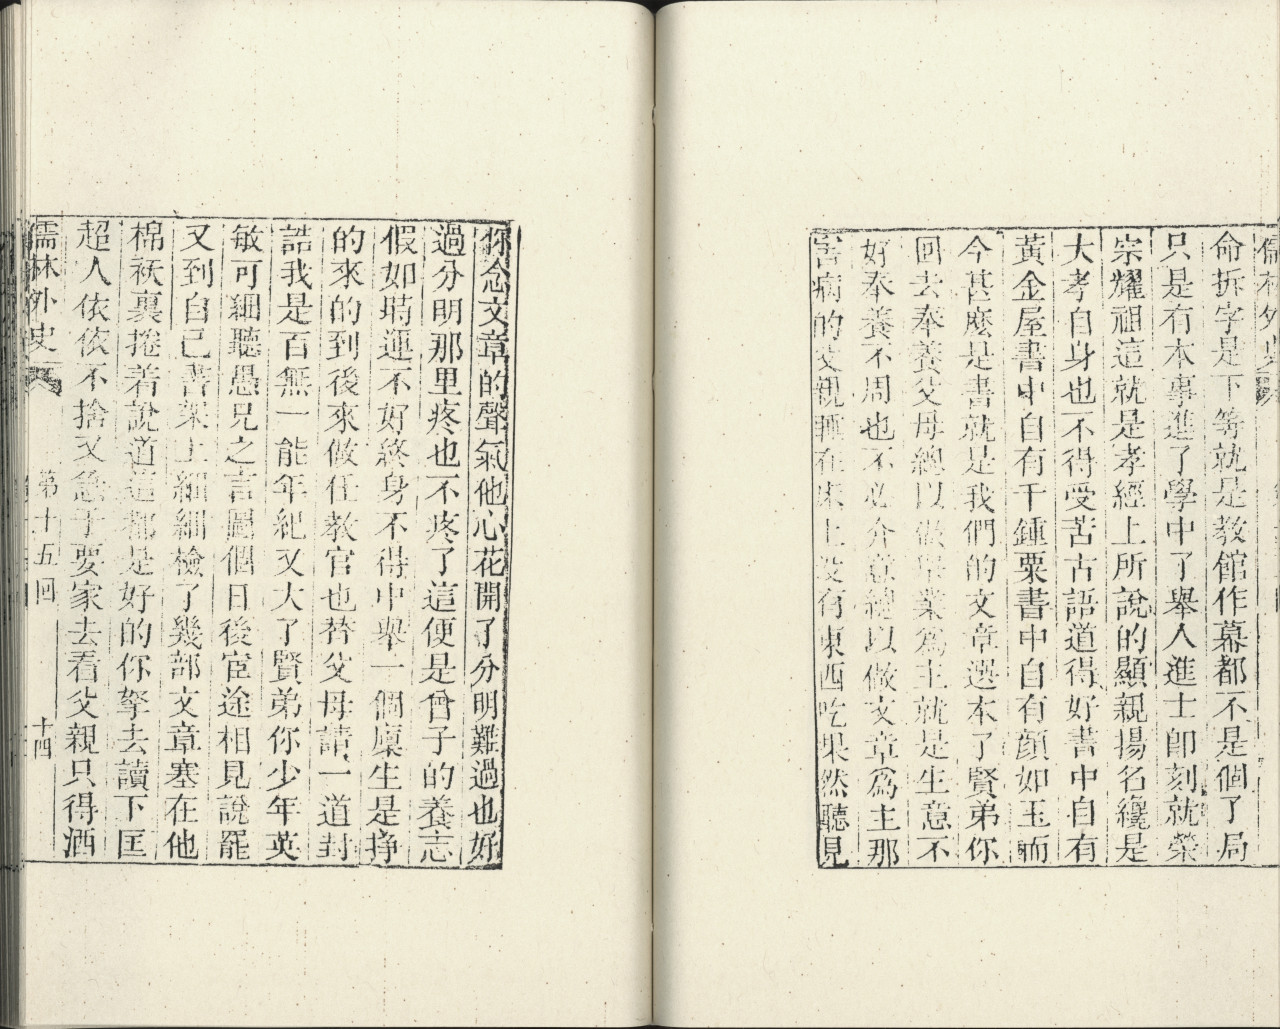 儒林外史
命拆字是下等就是教館作幕都不是個了局
只是有本事進了學中了舉人進士卽刻就榮
宗耀祖這就是孝經上所說的顯親揚名纔是
大孝自身也不得受苦古語道得好書中自有
黃金屋書中自有千鍾粟書中自有顔如玉而
今甚麽是書就是我們的文章選本了賢弟你
回去奉養父母總以做舉業爲主就是生意不
好奉養不周也不必介意總以做文章爲主那
害病的父親睡在床上没有東西吃果然聽見
你念文章的聲氣他心花開了分明難過也好
過分明那里疼也不疼了這便是曾子的養志
假如時運不好終身不得中舉一個廩生是挣
的來的到後來做任教官也替父母請一道封
誥我是百無一能年紀又大了賢弟你少年英
敏可細聽愚兄之言圖個日後宦途相見說罷
又到自己書架上細細檢了幾部文章塞在他
棉袄裏捲着說道這都是好的你拏去讀下匡
超人依依不捨又急于要家去看父親只得洒
儒林外史 第十五回 十四